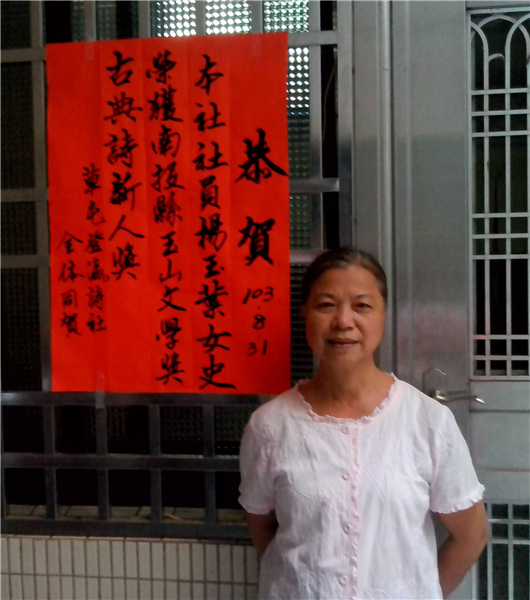 恭賀
103.8.31
本社社員楊玉葉女史
榮獲南投縣玉山文學獎
古典詩新人獎
草屯登瀛詩社
全体同賀